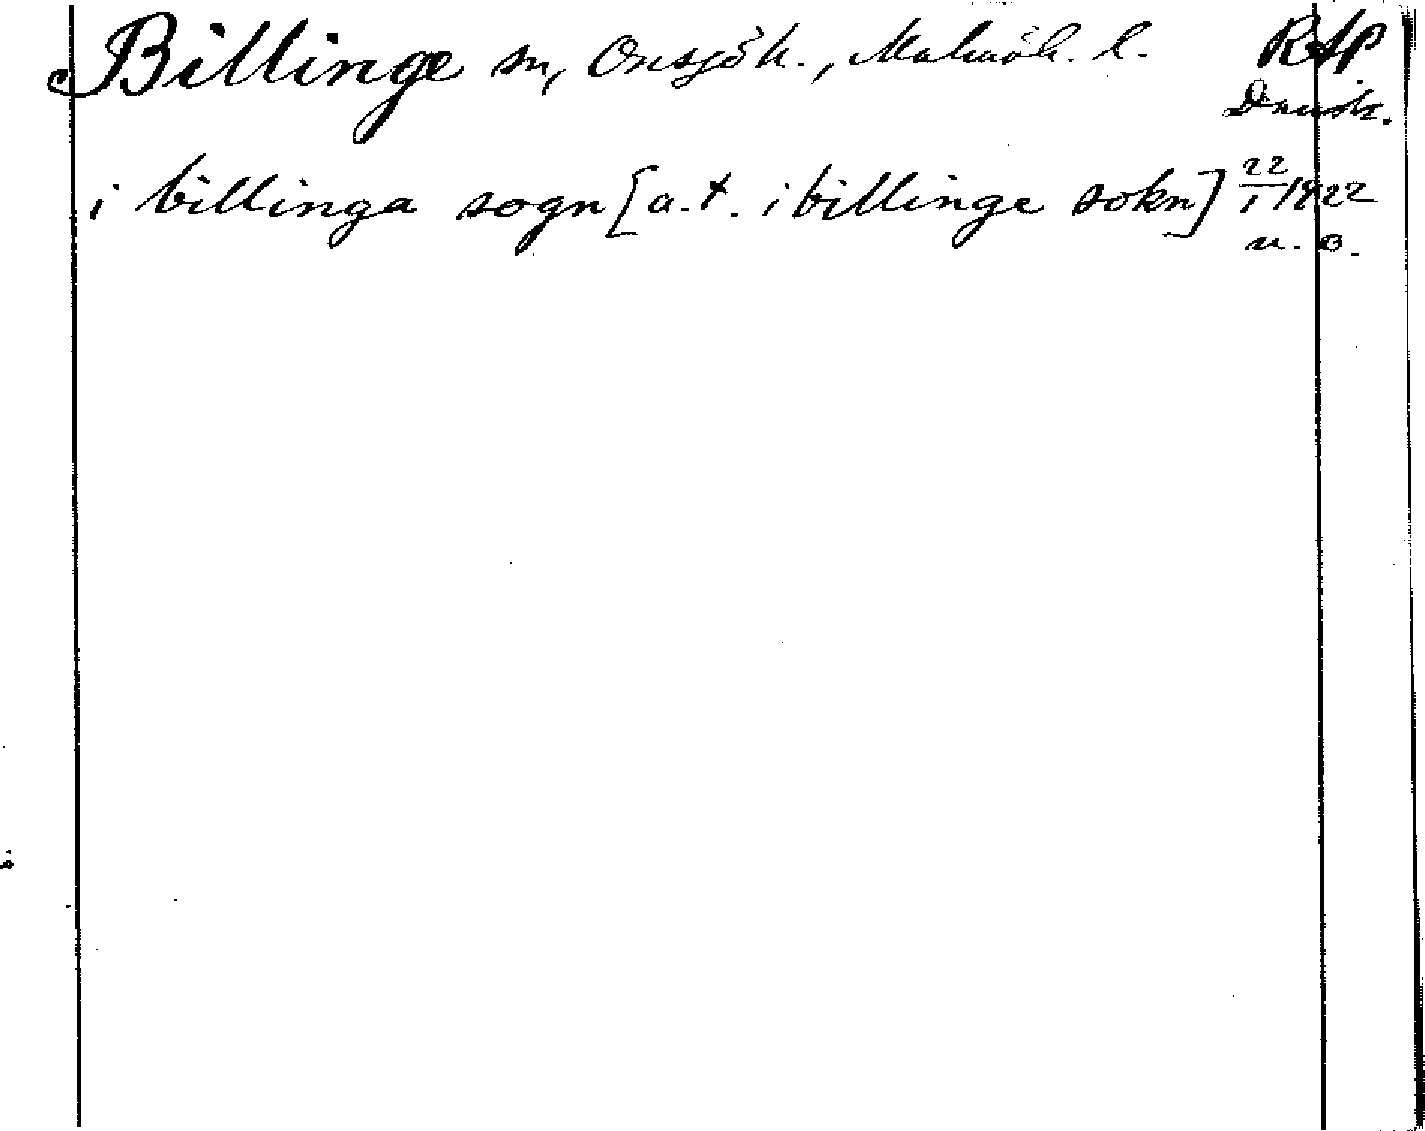 Billinge sn, Onsjö h., Malmöh. l. RAP
Dansk.
i billinga sogn [a. t. i billinge sokn] 22/1 1422
u. o.